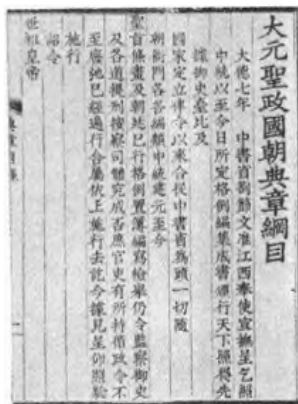 大元聖政國朝典章綱目
大德七年　中書省劄節文准江西奉使宣撫呈乞照
中統以至今日所定格例編集成書頒行天下照得先
據御史臺比及
國家定立律令以來合從中書省為頭一切隨
朝衙門各各編類中統建元至今
聖旨條畫及朝廷已行格例置簿編寫檢舉仍令監察御史
及各道提刑按察司體究成否庶官吏有所持循政令不
至廢弛已經遍行合屬依上施行去訖今據見呈仰照驗
施行
詔令
世祖皇帝